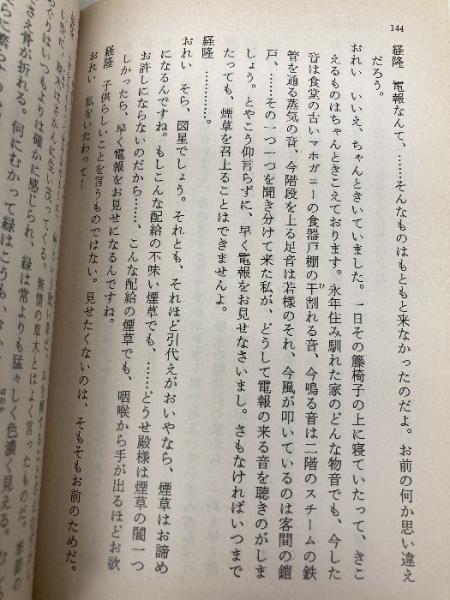 144
経隆 電報なんて、……そんなものはもともと来なかったのだよ。お前の何か思い違え
だろう。
おれい いいえ、ちゃんときいていました。一日その籐椅子の上に寝ていたって、きこ
えるものはちゃんときこえております。永年住み馴れた家のどんな物音でも、今した
音は食堂の古いマホガニーの食器戸棚の干割れる音、今鳴る音は二階のスチームの鉄
管を通る蒸気の音、今階段を上る足音は若様のそれ、今風が叩いているのは客間の鎧
戸、……その一つ一つを聞き分けて来た私が、どうして電報の来る音を聴きのがしま
しょう。とやこう仰言らずに、早く電報をお見せなさいまし。さもなければいつまで
たっても、煙草を召上ることはできませんよ。
経隆 …………。
おれい そら、図星でしょう。それとも、それほど引代えがおいやなら、煙草はお諦め
になるんですね。もしこんな配給の不味い煙草でも、……どうせ殿様は煙草の闇一つ
お許しにならないのだから……、こんな配給の煙草でも、咽喉から手が出るほどお欲
しかったら、早く電報をお見せになるんですね。
経隆 子供らしいことを言うものではない。見せたくないのは、そもそもお前のためだ。
おれい 私をいたわって！
無情の草木とはよく言ったものだ。季節の
ぐりはいつもよりは確かに感じられ、緑は常よりも猛々しく色濃く見える。
さえ骨が折れる。何にむかって緑はこうも